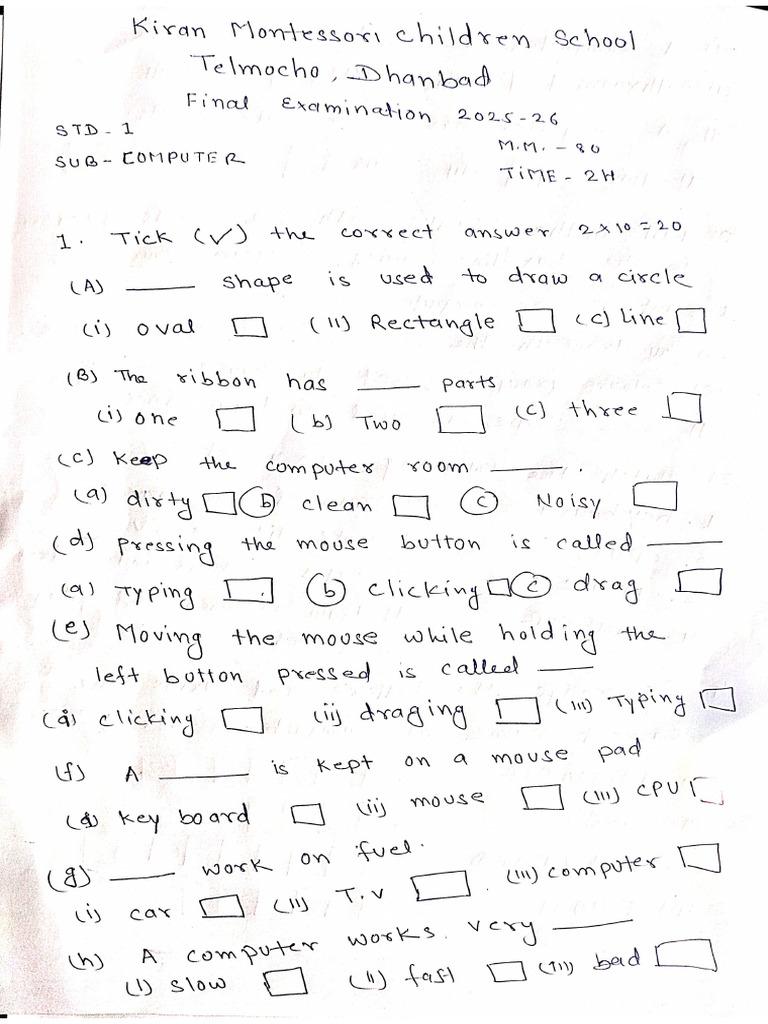 Kiran Montessori Children School
Telmocho, Dhanbad
Final Examination 2025-26
STD - 1
M.M. - 80
SUB - COMPUTER
TIME - 2H
1. Tick (✓) the correct answer 2x10=20
(A) ______ shape is used to draw a circle
(i) oval □ (ii) Rectangle □ (c) line □
(B) The ribbon has ______ parts
(i) one □ (b) Two □ (c) three □
(c) Keep the computer room ______.
(a) dirty □ (b) clean □ (c) Noisy □
(d) pressing the mouse button is called ______
(a) Typing □ (b) clicking □ (c) drag □
(e) Moving the mouse while holding the
left button pressed is called ______
(a) clicking □ (ii) draging □ (iii) Typing □
(f) A ______ is kept on a mouse pad
(a) key board □ (ii) mouse □ (iii) CPU □
(g) ______ work on fuel.
(i) car □ (ii) T.V □ (iii) computer □
(h) A computer works very ______
(i) slow □ (ii) fast □ (iii) bad □